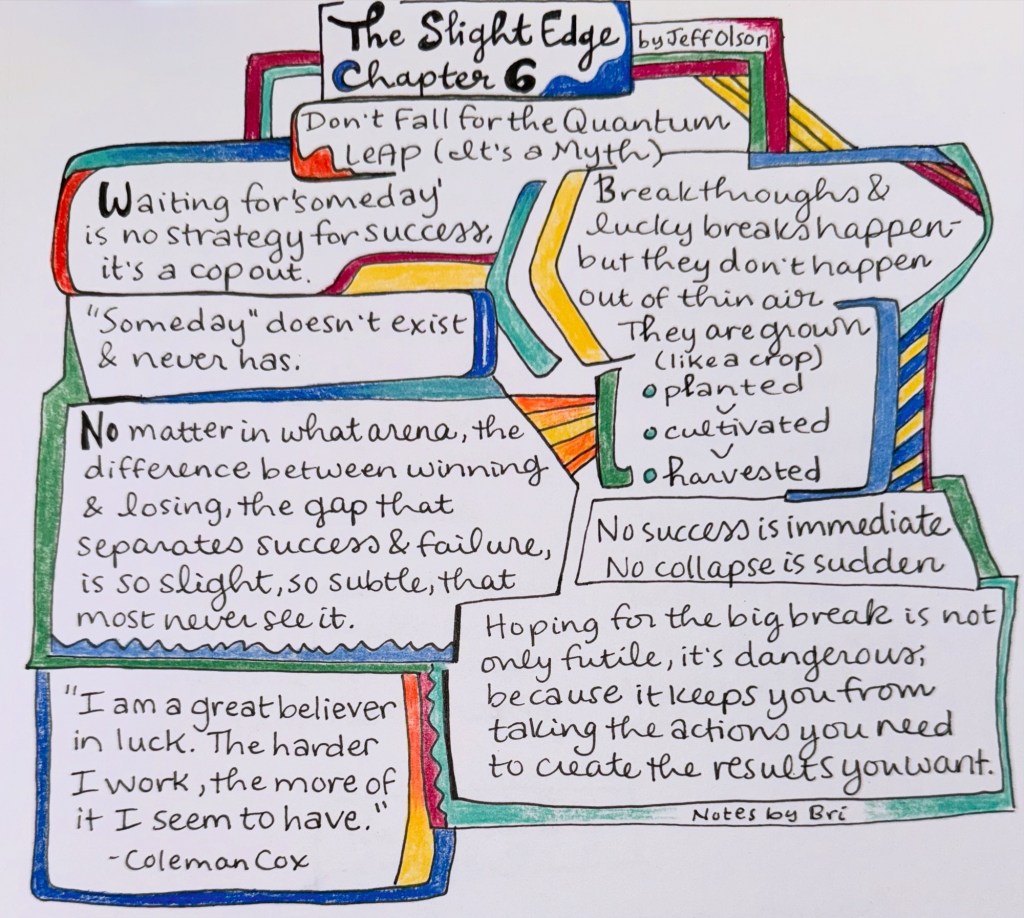 The Slight Edge
by Jeff Olson
Chapter 6
Don't Fall for the Quantum
Leap (It's a Myth)
Waiting for 'someday'
is no strategy for success,
it's a cop out.
"Someday" doesn't exist
& never has.
No matter in what arena, the
difference between winning
& losing, the gap that
separates success & failure,
is so slight, so subtle, that
most never see it.
"I am a great believer
in luck. The harder
I work, the more of
it I seem to have."
-Coleman Cox
Breakthroughs &
lucky breaks happen-
but they don't happen
out of thin air.
They are grown
(like a crop)
planted
cultivated
harvested
No success is immediate
No collapse is sudden
Hoping for the big break is not
only futile, it's dangerous;
because it keeps you from
taking the actions you need
to create the results you want.
Notes by Bri